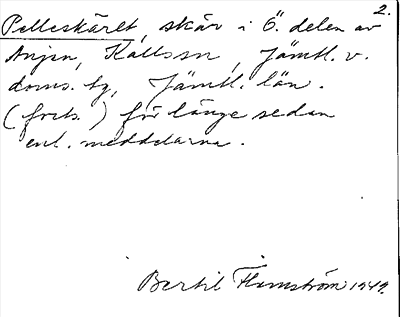 2.
Pelleskäret, skär i ö. delen av
Anjen, Kallssn, Jämtl. v.
doms. tg, Jämtl. län.
(forts.) för länge sedan
enl. meddelarna.
Bertil Flemström 1949.